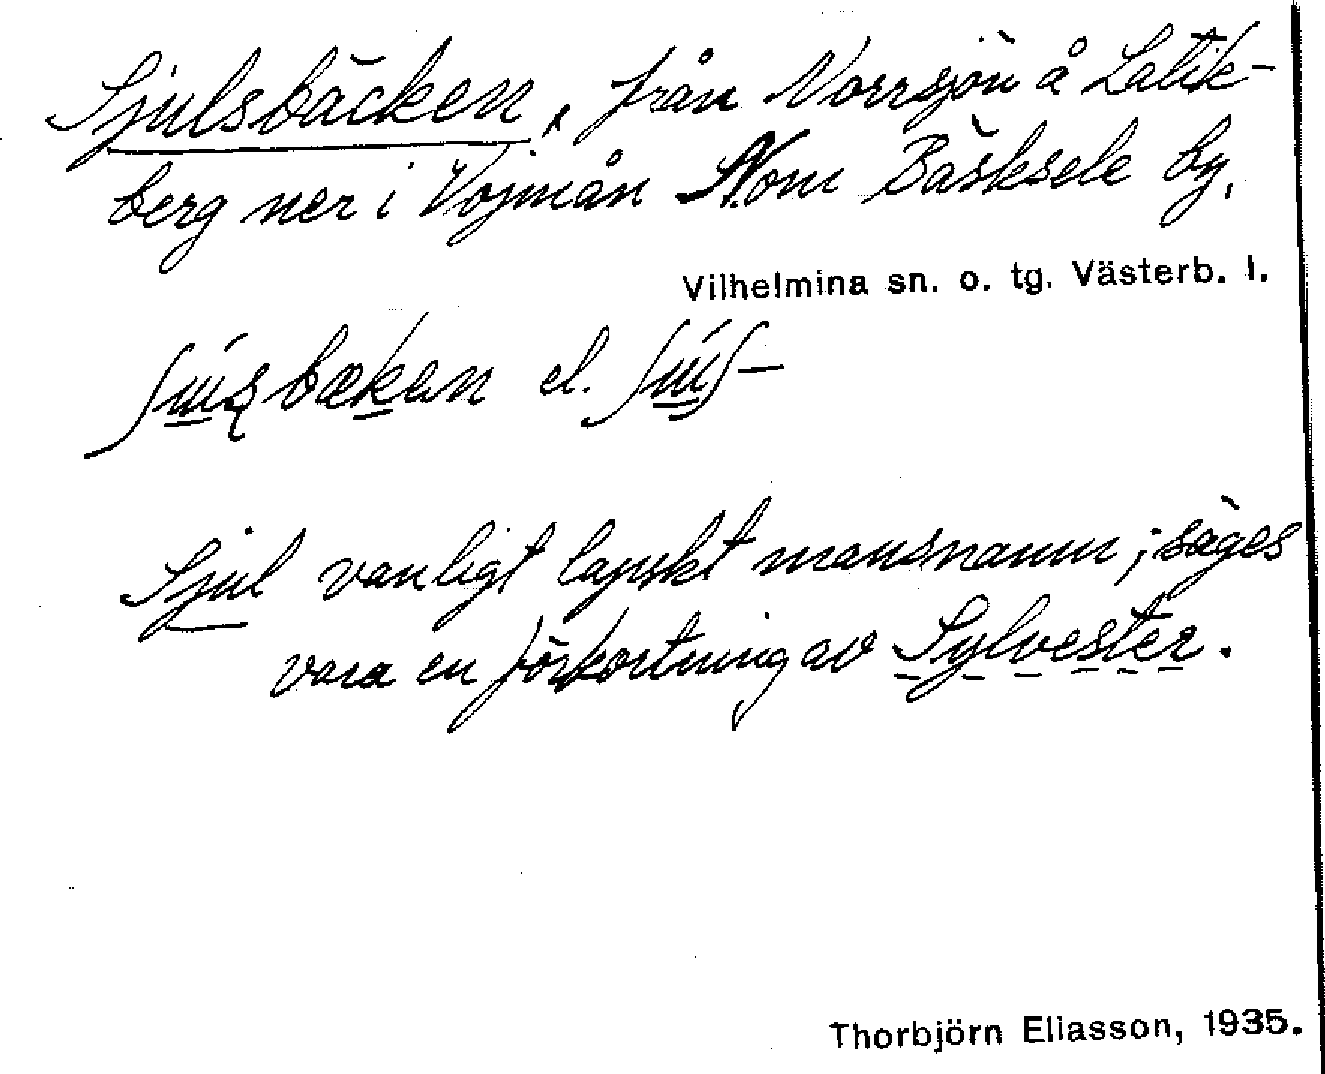 Sjulsbäcken, från Norrsjön å Latik-
berg ner i Vojmån Nom Bäsksele by.
Vilhelmina sn. o. tg. Västerb. l.
bækan el.
Sjul vanligt lapskt mansnamn; säges
vara en förkortning av Sylvester.
Thorbjörn Eliasson, 1935.